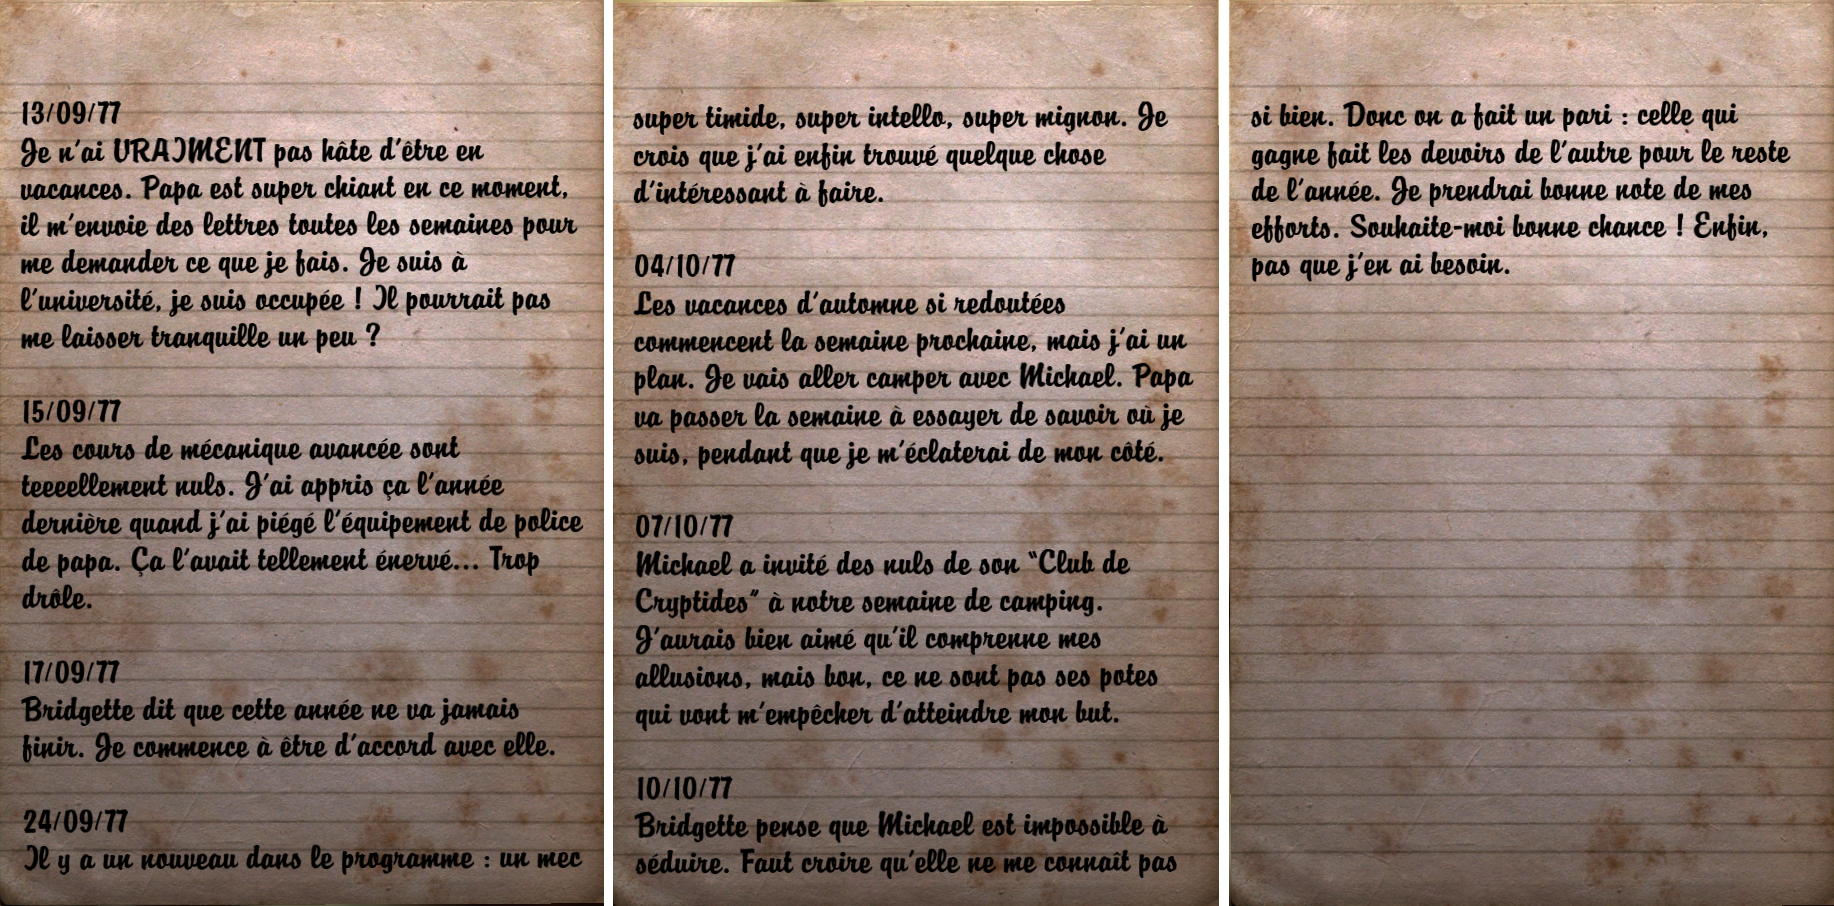 13/09/77
Je n'ai VRAIMENT pas hâte d'être en
vacances. Papa est super chiant en ce moment,
il m'envoie des lettres toutes les semaines pour
me demander ce que je fais. Je suis à
l'université, je suis occupée ! Il pourrait pas
me laisser tranquille un peu ?
15/09/77
Les cours de mécanique avancée sont
teeeellement nuls. J'ai appris ça l'année
dernière quand j'ai piégé l'équipement de police
de papa. Ça l'avait tellement énervé... Trop
drôle.
17/09/77
Bridgette dit que cette année ne va jamais
finir. Je commence à être d'accord avec elle.
24/09/77
Il y a un nouveau dans le programme : un mec
super timide, super intello, super mignon. Je
crois que j'ai enfin trouvé quelque chose
d'intéressant à faire.
04/10/77
Les vacances d'automne si redoutées
commencent la semaine prochaine, mais j'ai un
plan. Je vais aller camper avec Michael. Papa
va passer la semaine à essayer de savoir où je
suis, pendant que je m'éclaterai de mon côté.
07/10/77
Michael a invité des nuls de son "Club de
Cryptides" à notre semaine de camping.
J'aurais bien aimé qu'il comprenne mes
allusions, mais bon, ce ne sont pas ses potes
qui vont m'empêcher d'atteindre mon but.
10/10/77
Bridgette pense que Michael est impossible à
séduire. Faut croire qu'elle ne me connaît pas
si bien. Donc on a fait un pari : celle qui
gagne fait les devoirs de l'autre pour le reste
de l'année. Je prendrai bonne note de mes
efforts. Souhaite-moi bonne chance ! Enfin,
pas que j'en ai besoin.